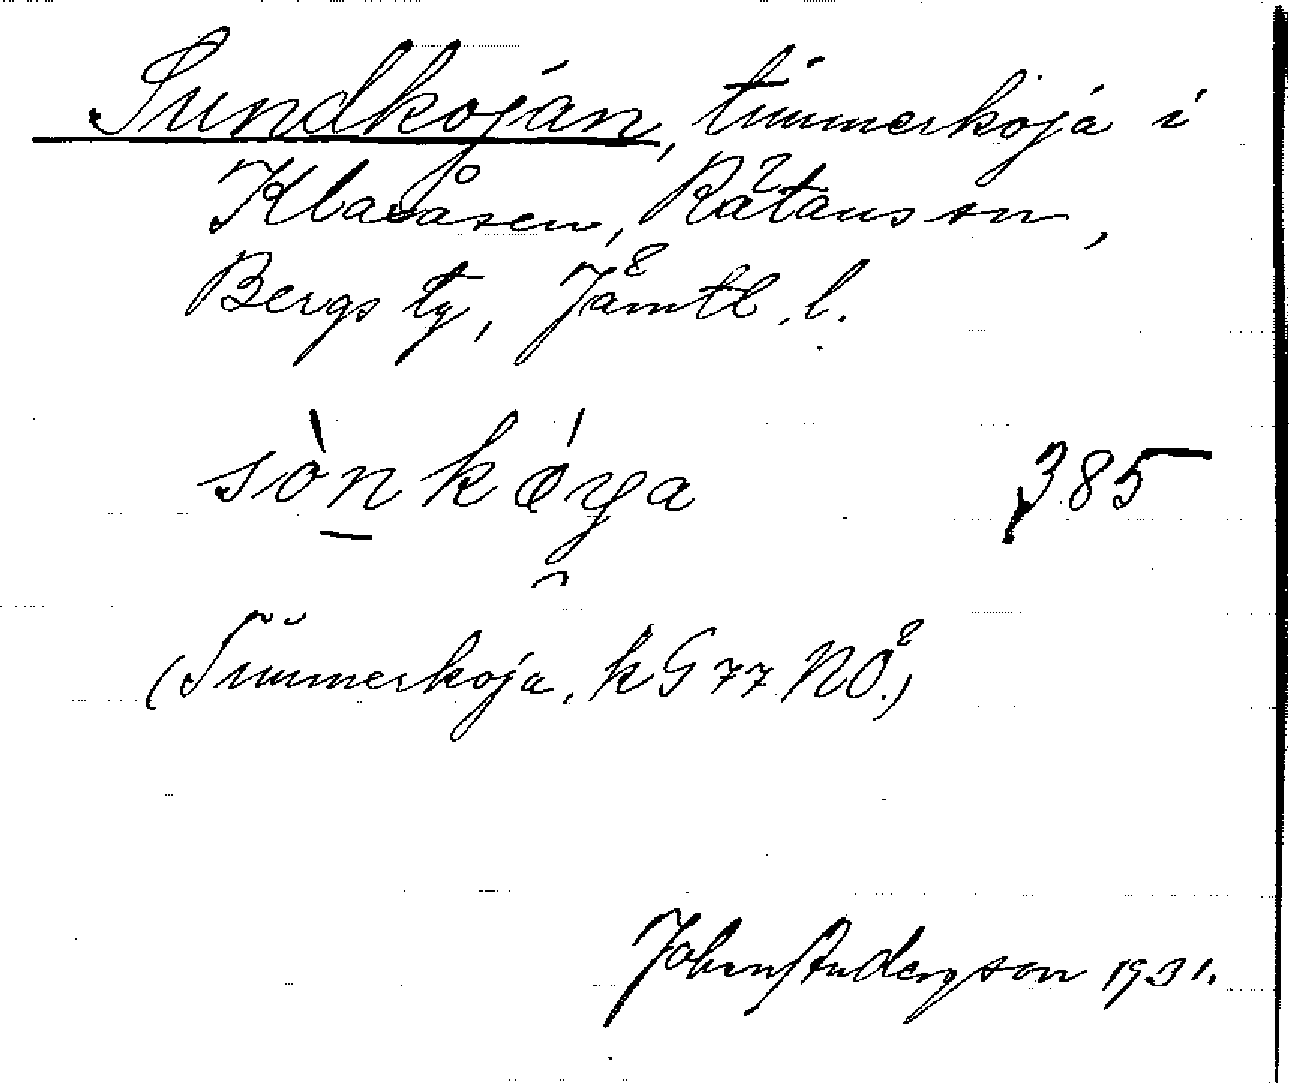 Sundkojan, timmerkoja i
Klasåsen, Rätans sn,
Bergs tg, Jämtl. l.
sònkója 385
(Timmerkoja. k G 77 NÖ.)
John Andersson 1931.